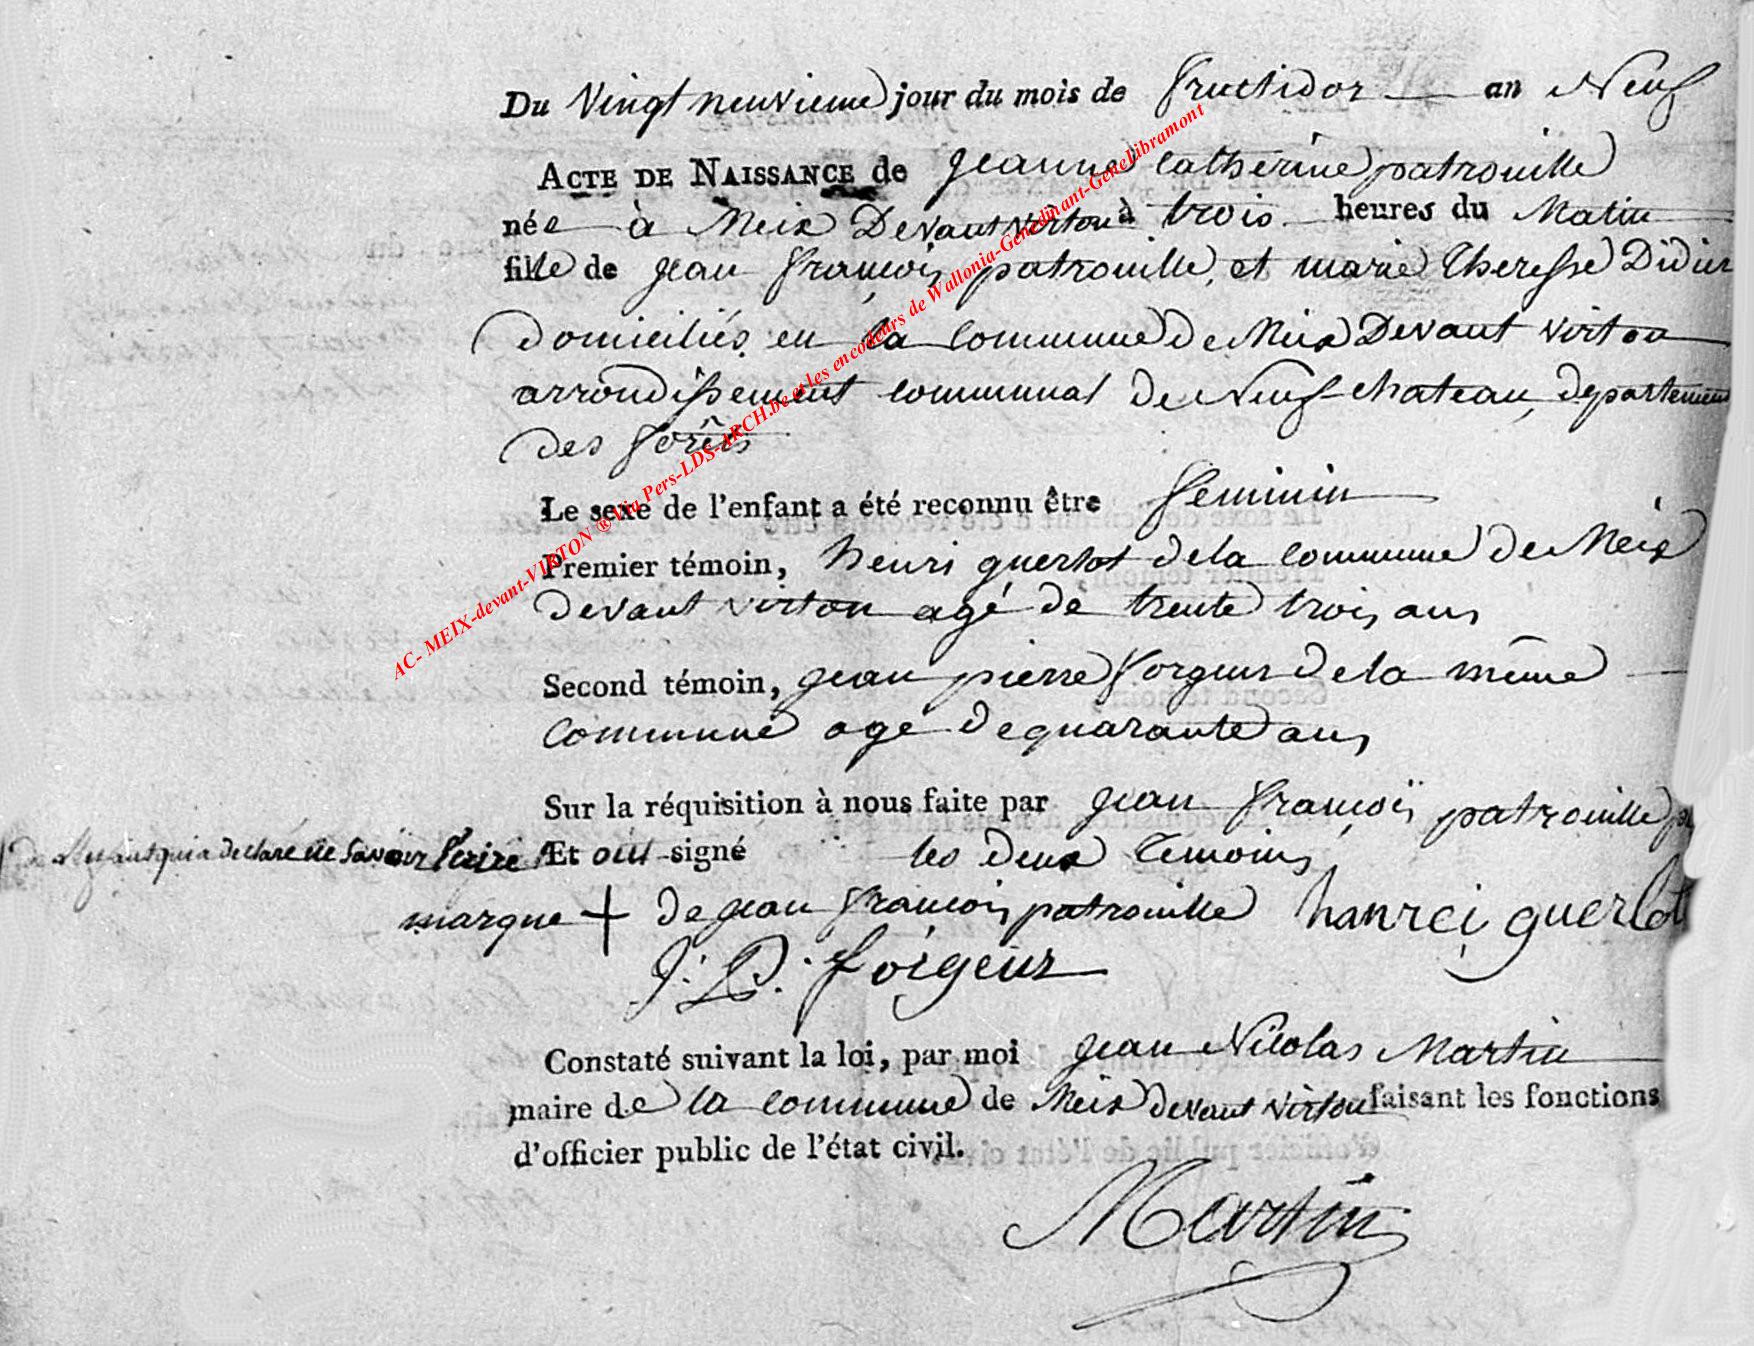 Du Vingt neuvieme jour du mois de fructidor an Neuf
ACTE DE NAISSANCE de jeanne Catherine patrouille
née à Meix Devant virton à trois heures du Matin
fille de jean françois patrouille, et marie Theresse Didier
Domiciliés en la commune De Meix Devant virton
arrondissement communal De Neufchateau, departement
Des forêts
Le sexe de l'enfant a été reconnu être feminin
Premier témoin, henri guerlot de la commune De Meix
Devant virton agé de trente trois ans
Second témoin, jean pierre forgeur De la même
commune agé De quarante ans
Sur la réquisition à nous faite par jean françois patrouille
qui a declaré ne savoir Ecrire Et ont signé les deux Temoins
marque + De jean françois patrouille hanrei guerlot
J: P: forgeur
Constaté suivant la loi, par moi jean Nicolas Martin
maire de la commune de Meix devant virton faisant les fonctions
d'officier public de l'état civil.
Martin
AC- MEIX-devant-VIRTON ® Via Pers-LDS-ARCH.be et les encodeurs de Wallonia-Genedinant-GeneLibramont